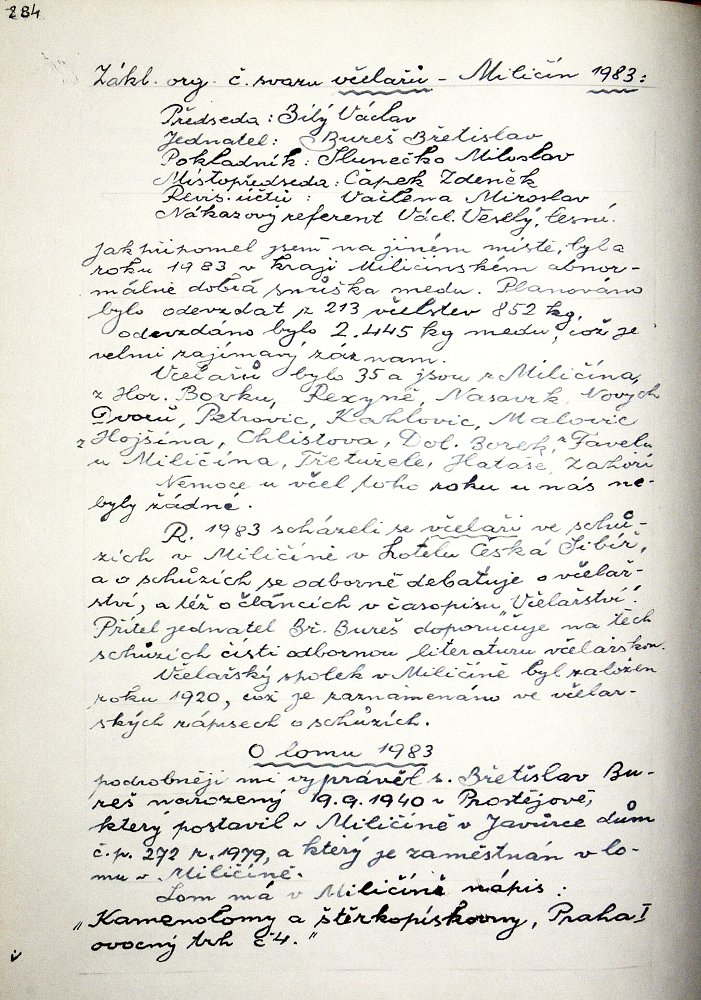 284
Zákl. org. č. svazu včelařů - Miličín 1983:
Předseda: Bílý Václav
Jednatel: Bureš Břetislav
Pokladník: Slunečko Miloslav
Místopředseda: Čápek Zdeněk
Revis. účtů: Vačlena Miroslav
Nákazový referent Václ. Veselý, lesní.
Jak připomel jsem na jiném místě, byla
roku 1983 v kraji Miličínském abnor-
málně dobrá snůška medu. Plánováno
bylo odevzdat z 213 včelstev 852 kg,
odevzdáno bylo 2.445 kg medu, což je
velmi zajímavý záznam.
Včelařů bylo 35 a jsou z Miličína,
z Hor. Borku, Reksyně, Nasavrk, Nových
Dvorů, Petrovic, Kahlovic, Malovic
z Hojšína, Chlistova, Dol. Borek, z Távelu
u Miličína, Třetužele, Hataše, Zahoří
Nemoce u včel toho roku u nás ne-
byly žádné.
R. 1983 scházeli se včelaři ve schů-
zích v Miličíně v hotelu Česká Sibiř,
a o schůzích se odborně debatuje o včelař-
ství, a též o článcích v časopisu "Včelařství".
Přítel jednatel Bř. Bureš doporučuje na těch
schůzích čísti odbornou literaturu včelařskou.
Včelařský spolek v Miličíně byl založen
roku 1920, což je zaznamenáno ve včelař-
ských zápisech o schůzích.
O lomu 1983
podrobněji mi vyprávěl s. Břetislav Bu-
reš narozený 19.9.1940 v Prostějově,
který postavil v Miličíně v Javůrce dům
č.p. 272 r. 1979, a který je zaměstnán v lo-
mu v Miličíně.
Lom má v Miličíně nápis:
"Kamenolomy a štěrkopískovny, Praha I
ovocný trh č 4."